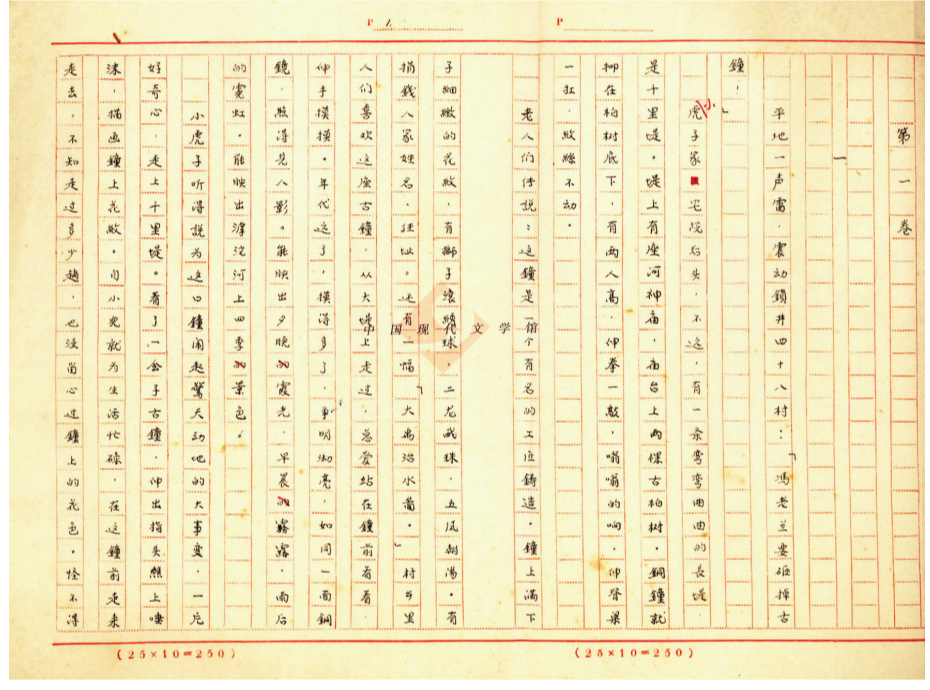 P 1.
P
第一卷
一
平地一声雷,震动鎖井四十八村:「馮老兰要砸掉古
鐘!」
小虎子家宅院后头,不远,有一条弯弯曲曲的長堤
是十里堤。堤上有座河神庙,庙台上两棵古柏树。銅鐘就
柳在柏树底下,有两人高,伸拳一敲,嗡嗡的响,伸脊梁
一扛,紋絲不动。
老人们传説:这鐘是一个有名的工匠鋳造。鐘上滿下
子細緻的花紋,有獅子滾綉球,二龙戏珠,五凤朝陽。有
捐錢人家姓名、住址。还有一幅「大禹治水圖。」村乡里
人们喜欢这座古鐘,从大堤上走过,总爱站在鐘前看看
伸手摸摸。年代远了,摸得多了,事明沏亮,如同一面銅
鏡,照得見人影。能映出夕晚的霞光,早晨的霧露,雨后
的霓虹。能映出滹沱河上四季的景色。
小虎子听得説为这口鐘闹起驚天动地的大事变,一片
好奇心,走上千里堤。看了一会子古鐘,伸出指头蘸上唾
沫,描画鐘上花紋。自小兒就为生活忙碌,在这鐘前走来
走去,不知走过多少趟,也没留心过鐘上的花色。怪不得
(25×10=250)
(25×10=250)
中国现代文学馆